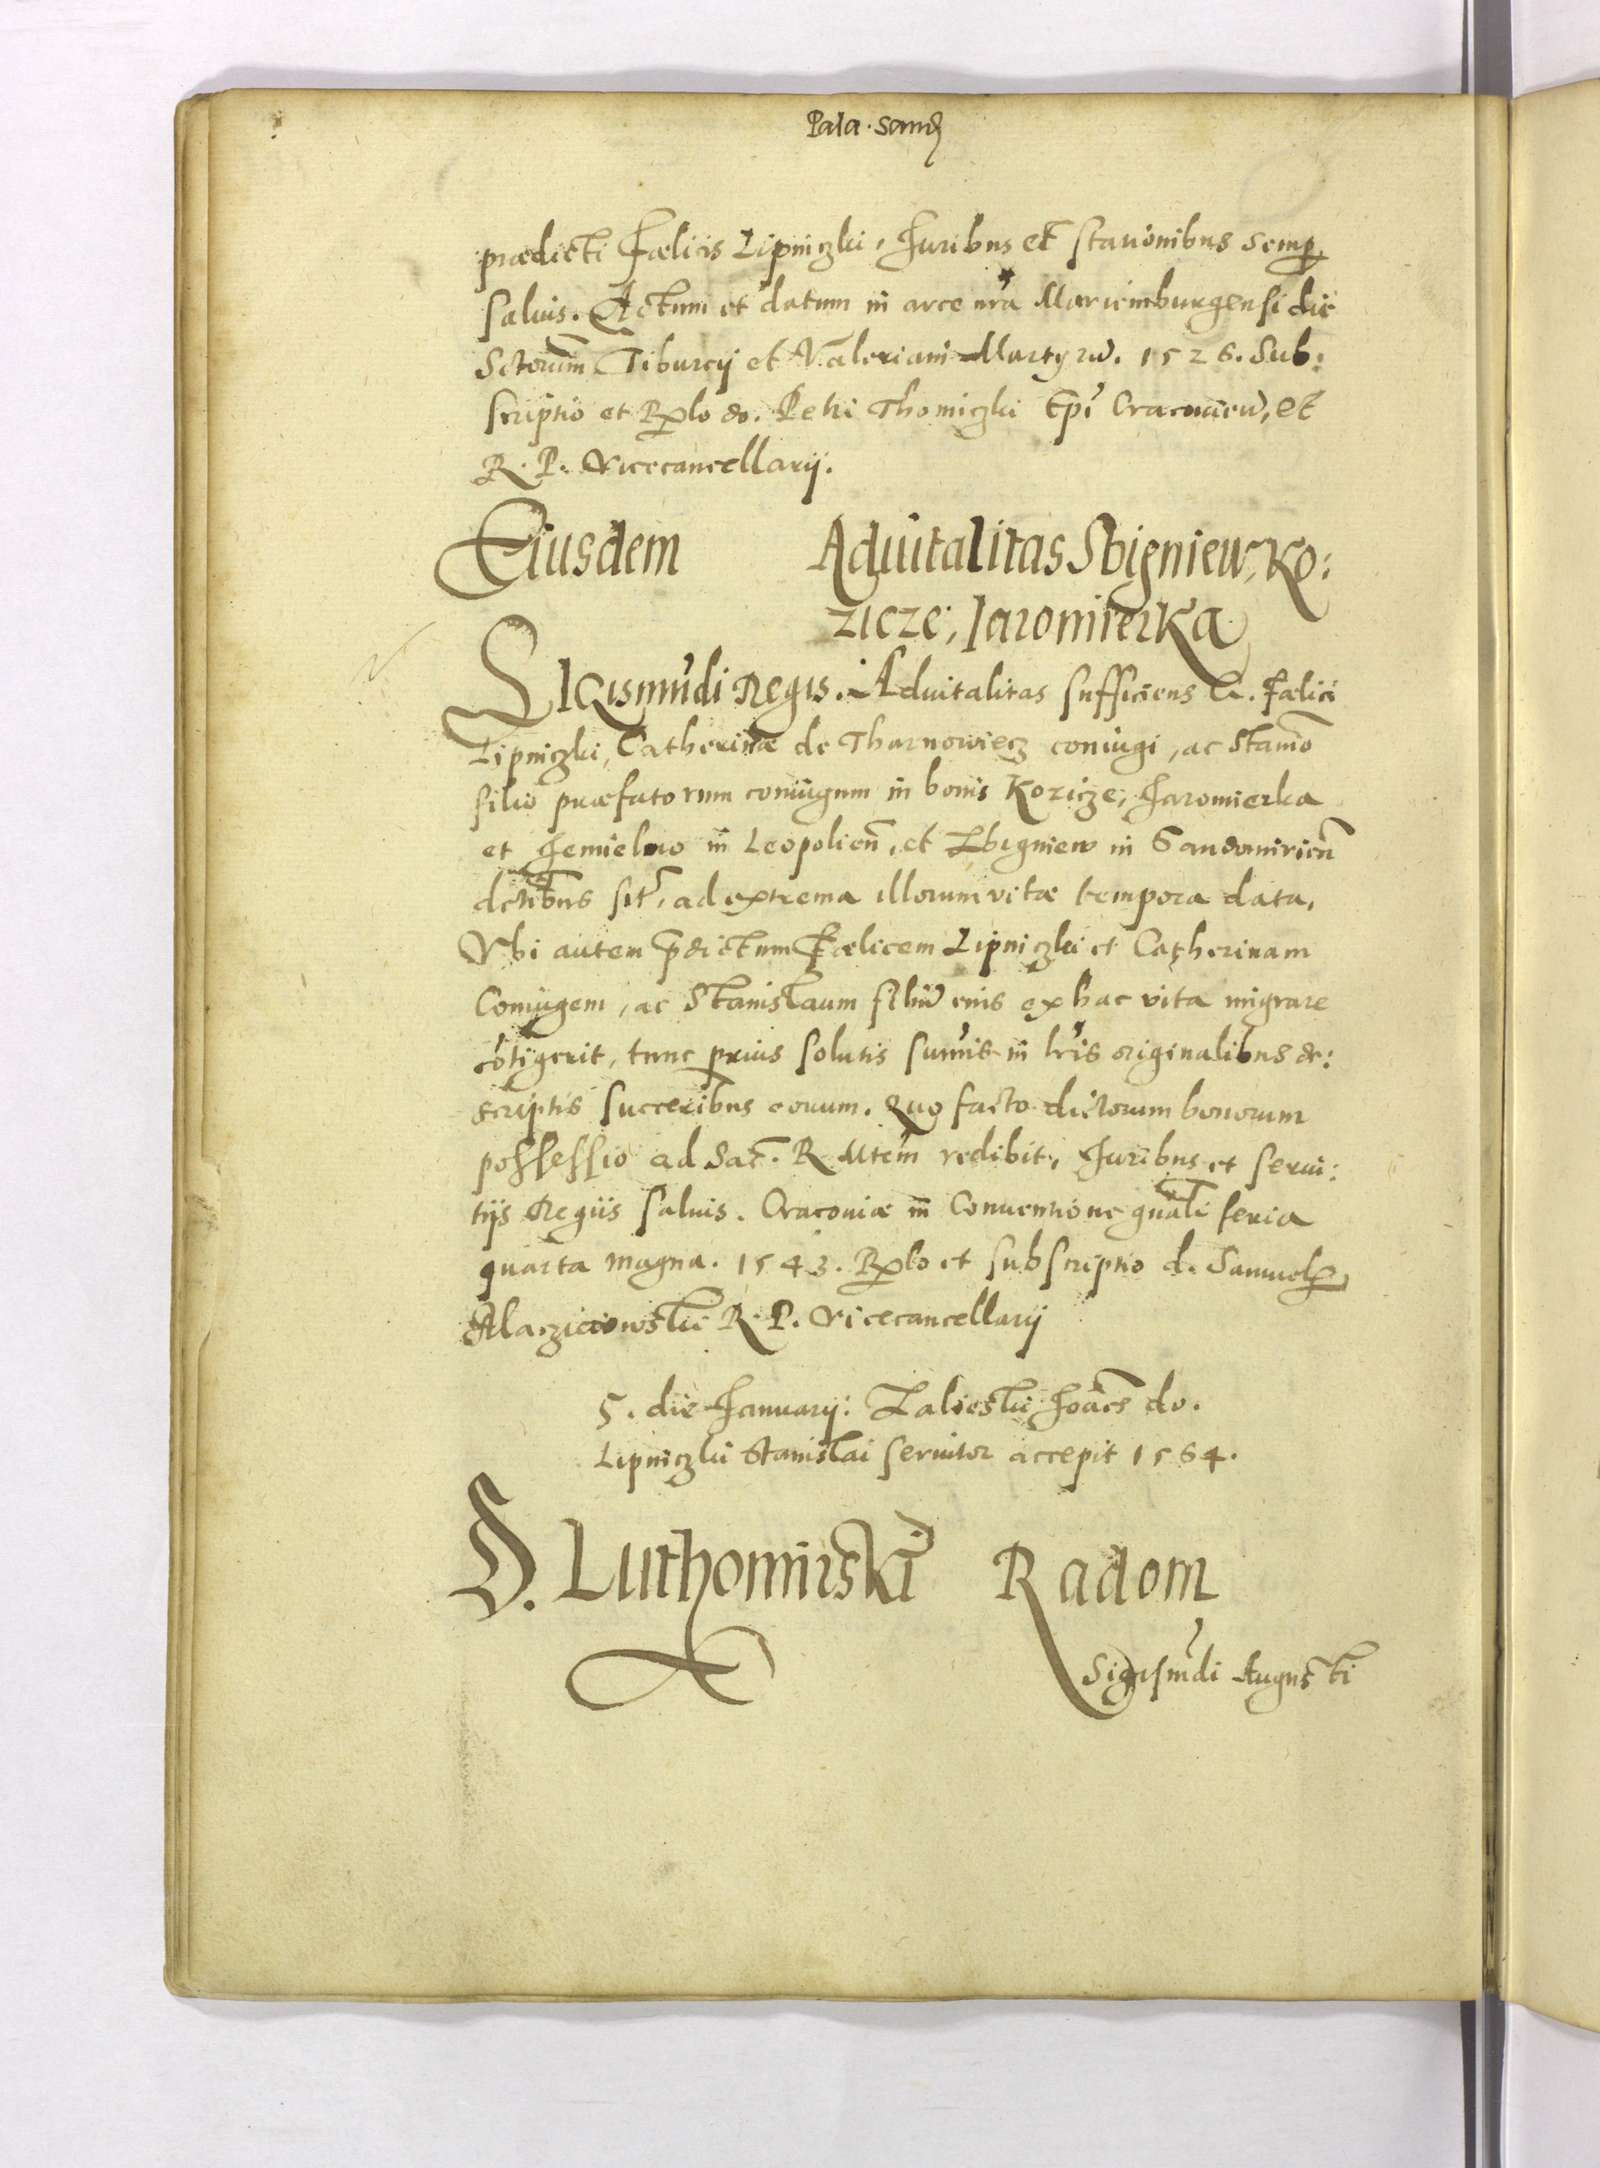 Pala. Sand
prædicti Fælicis Lipniczki, Juribus et stationibus semp
saluis. Actum et datum in arce nra Mariemburgensi die
Sctorum Tiburcij et Valeriani Martyru. 1526. Sub:
scriptio et Rxlo do. Petri Thomiczki Epi Cracouien, et
R. P. Vicecancellarij.
Eiusdem Aduitalitas Sbigniew, Ko:
zicze, Jaromierka
SIGismudi Regis. Aduitalitas sufficiens G. Fælici
Lipniczki, Catherinæ de Tharnowiecz coniugi, ac Stanio
filio præfatorum coniugum in bonis Kozicze, Jaromierka
et Jemielno in Leopolien, et Zbigniew in Sandomirien
dctibus sit, ad extrema illorum vitæ tempora data,
Vbi autem pdictum Fælicem Lipniczki et Catherinam
Coniugem, ac Stanislaum filiu eius ex hac vita migrare
cotigerit, tunc prius solutis sumis in lris originalibus de:
scriptis succeribus eorum. Quo facto dictorum bonorum
possessio ad Sac. R Mtem redibit, Juribus et serui:
tijs Regiis saluis. Cracouiæ in Conuentione gnali feria
quarta magna. 1543. Rxlo et subscriptio d. Samuelis
Maczieiowski R. P. Vicecancellarij
5. die Januarij: Zalieski Joaes do.
Lipniczki Stanislai seruitor accepit 1564.
S. Luthomirski Radom
Sigismudi Augusti